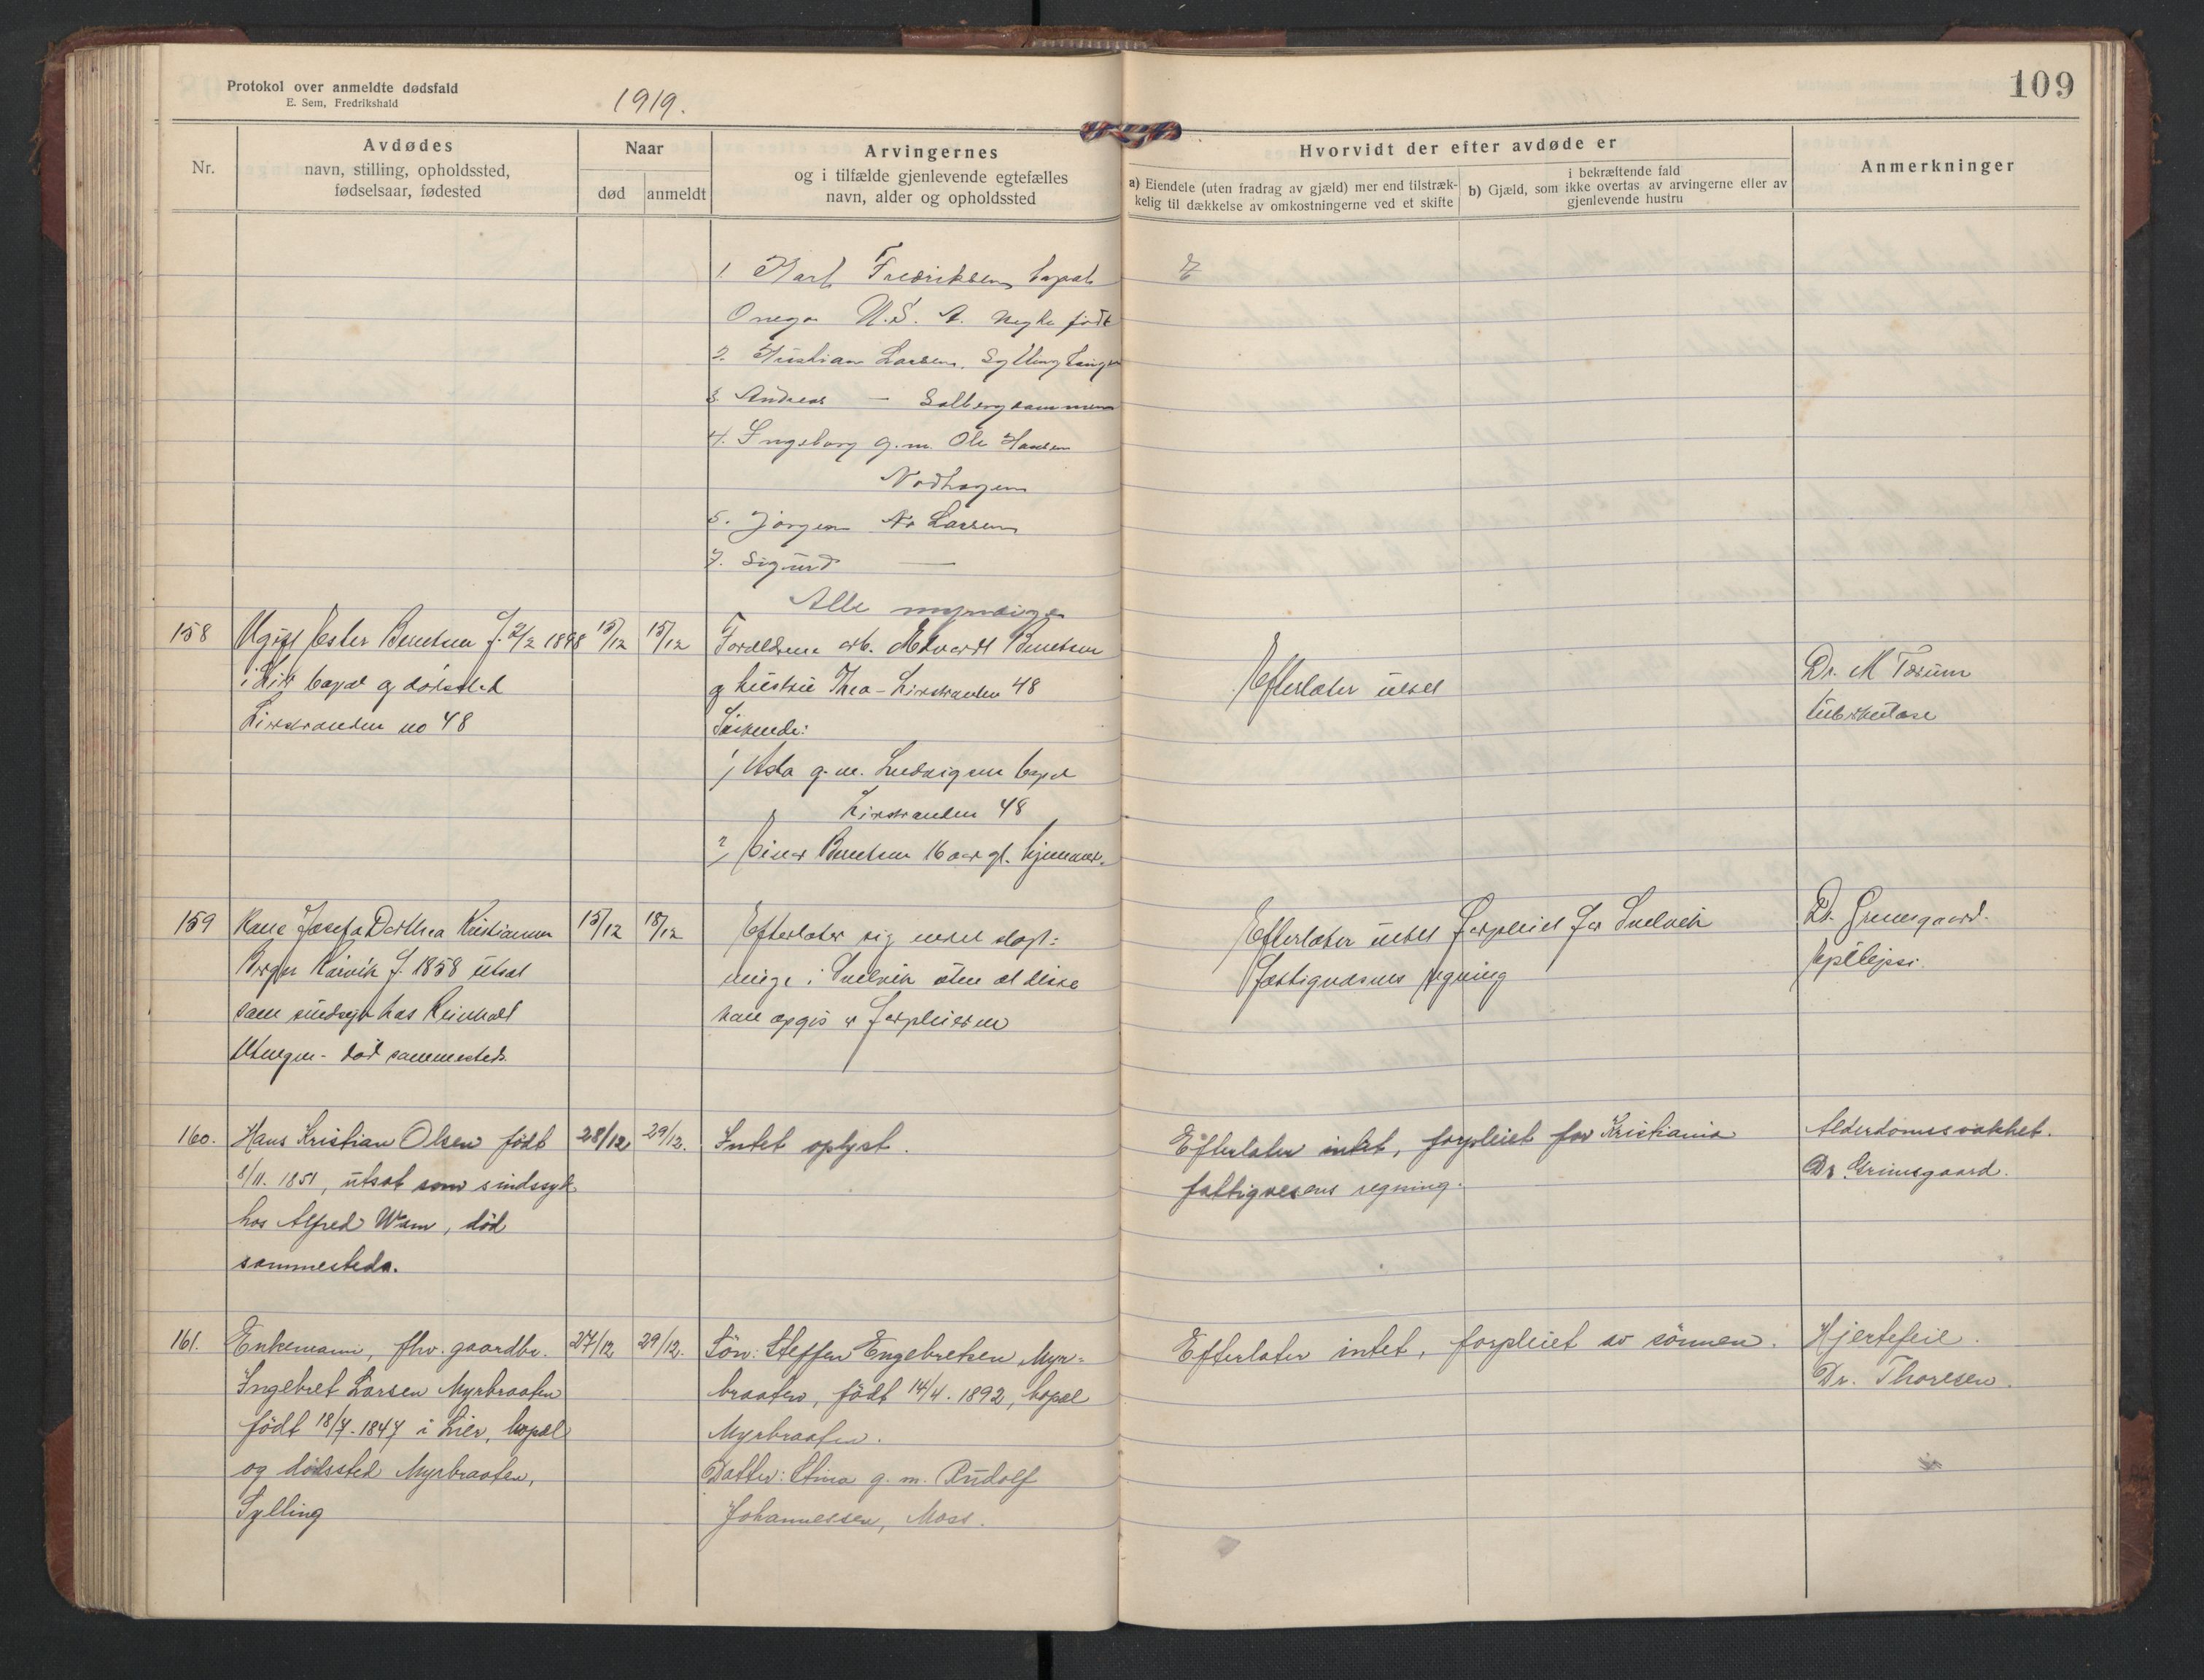 Protokol over anmeldte dødsfald
E. Sem, Fredrikshald
1919.
109
Nr.
Avdødes
navn, stilling, opholdssted,
fødselsaar, fødested
Naar
død
anmeldt
Arvingernes
og i tilfælde gjenlevende egtefælles
navn, alder og opholdssted
Hvorvidt der efter avdøde er
a) Eiendele (uten fradrag av gjæld) mer end tilstræk-
kelig til dækkelse av omkostningerne ved et skifte
i bekræftende fald
b) Gjæld, som ikke overtas av arvingerne eller av
gjenlevende hustru
Anmerkninger
1. Karl Fredriksen bopæl
U.S.A. født
2. Kristian Larsen, Sylling
3. Andreas —
4. Ingeborg g.m. Ole Hansen
5. Jørgen Larsen
7. Sigurd —
Alle myndige
158
Ugift Ester Berntsen f. 2/2 1898
i Lier bopæl og dødssted
Lierstranden no 48
15/12
15/12
Forældrene arb. Edvardt Berntsen
og hustru Thea - Lierstranden 48
Søskende:
1, Asta g.m. Ludvigsen bopæl
Lierstranden 48
2, Einar Berntsen 16 aar gl. hjemmev.
Efterlater intet
Dr. M Torum
tuberkulose
159
Josefa Dorthea Kristiansen
f. 1858 utsat
som sindssyk hos Reinholt
død sammesteds.
15/12
18/12
Efterlater sig intet slægt-
ninge i Svelvik uten at disse
kan opgis
Efterlater intet forpleiet for Svelvik
fattigvæsens regning
Dr. Grimsgaard.
epilepsi.
160.
Hans Kristian Olsen født
8/11. 1851, utsat som sindssyk
hos Alfred Wam, død
sammesteds.
28/12
29/12.
Intet oplyst.
Efterlater intet, forpleiet for Kristiania
fattigvesens regning.
Alderdomssvakhet.
Dr Grimsgaard.
161.
Enkemann, fhv. gaardbr.
Ingebret Larsen Myrbraaten
født 18/7-1847 i Lier, bopæl
og dødssted Myrbraaten,
Sylling
27/12
29/12.
Søn: Steffen Engebretsen Myr-
braaten, født 14/4. 1892, bopæl
Myrbraaten.
Datter: Stina g. m. Rudolf
Johannessen, Moss.
Efterlater intet, forpleiet av sønnen.
Hjertefeil.
Dr. Thoresen.